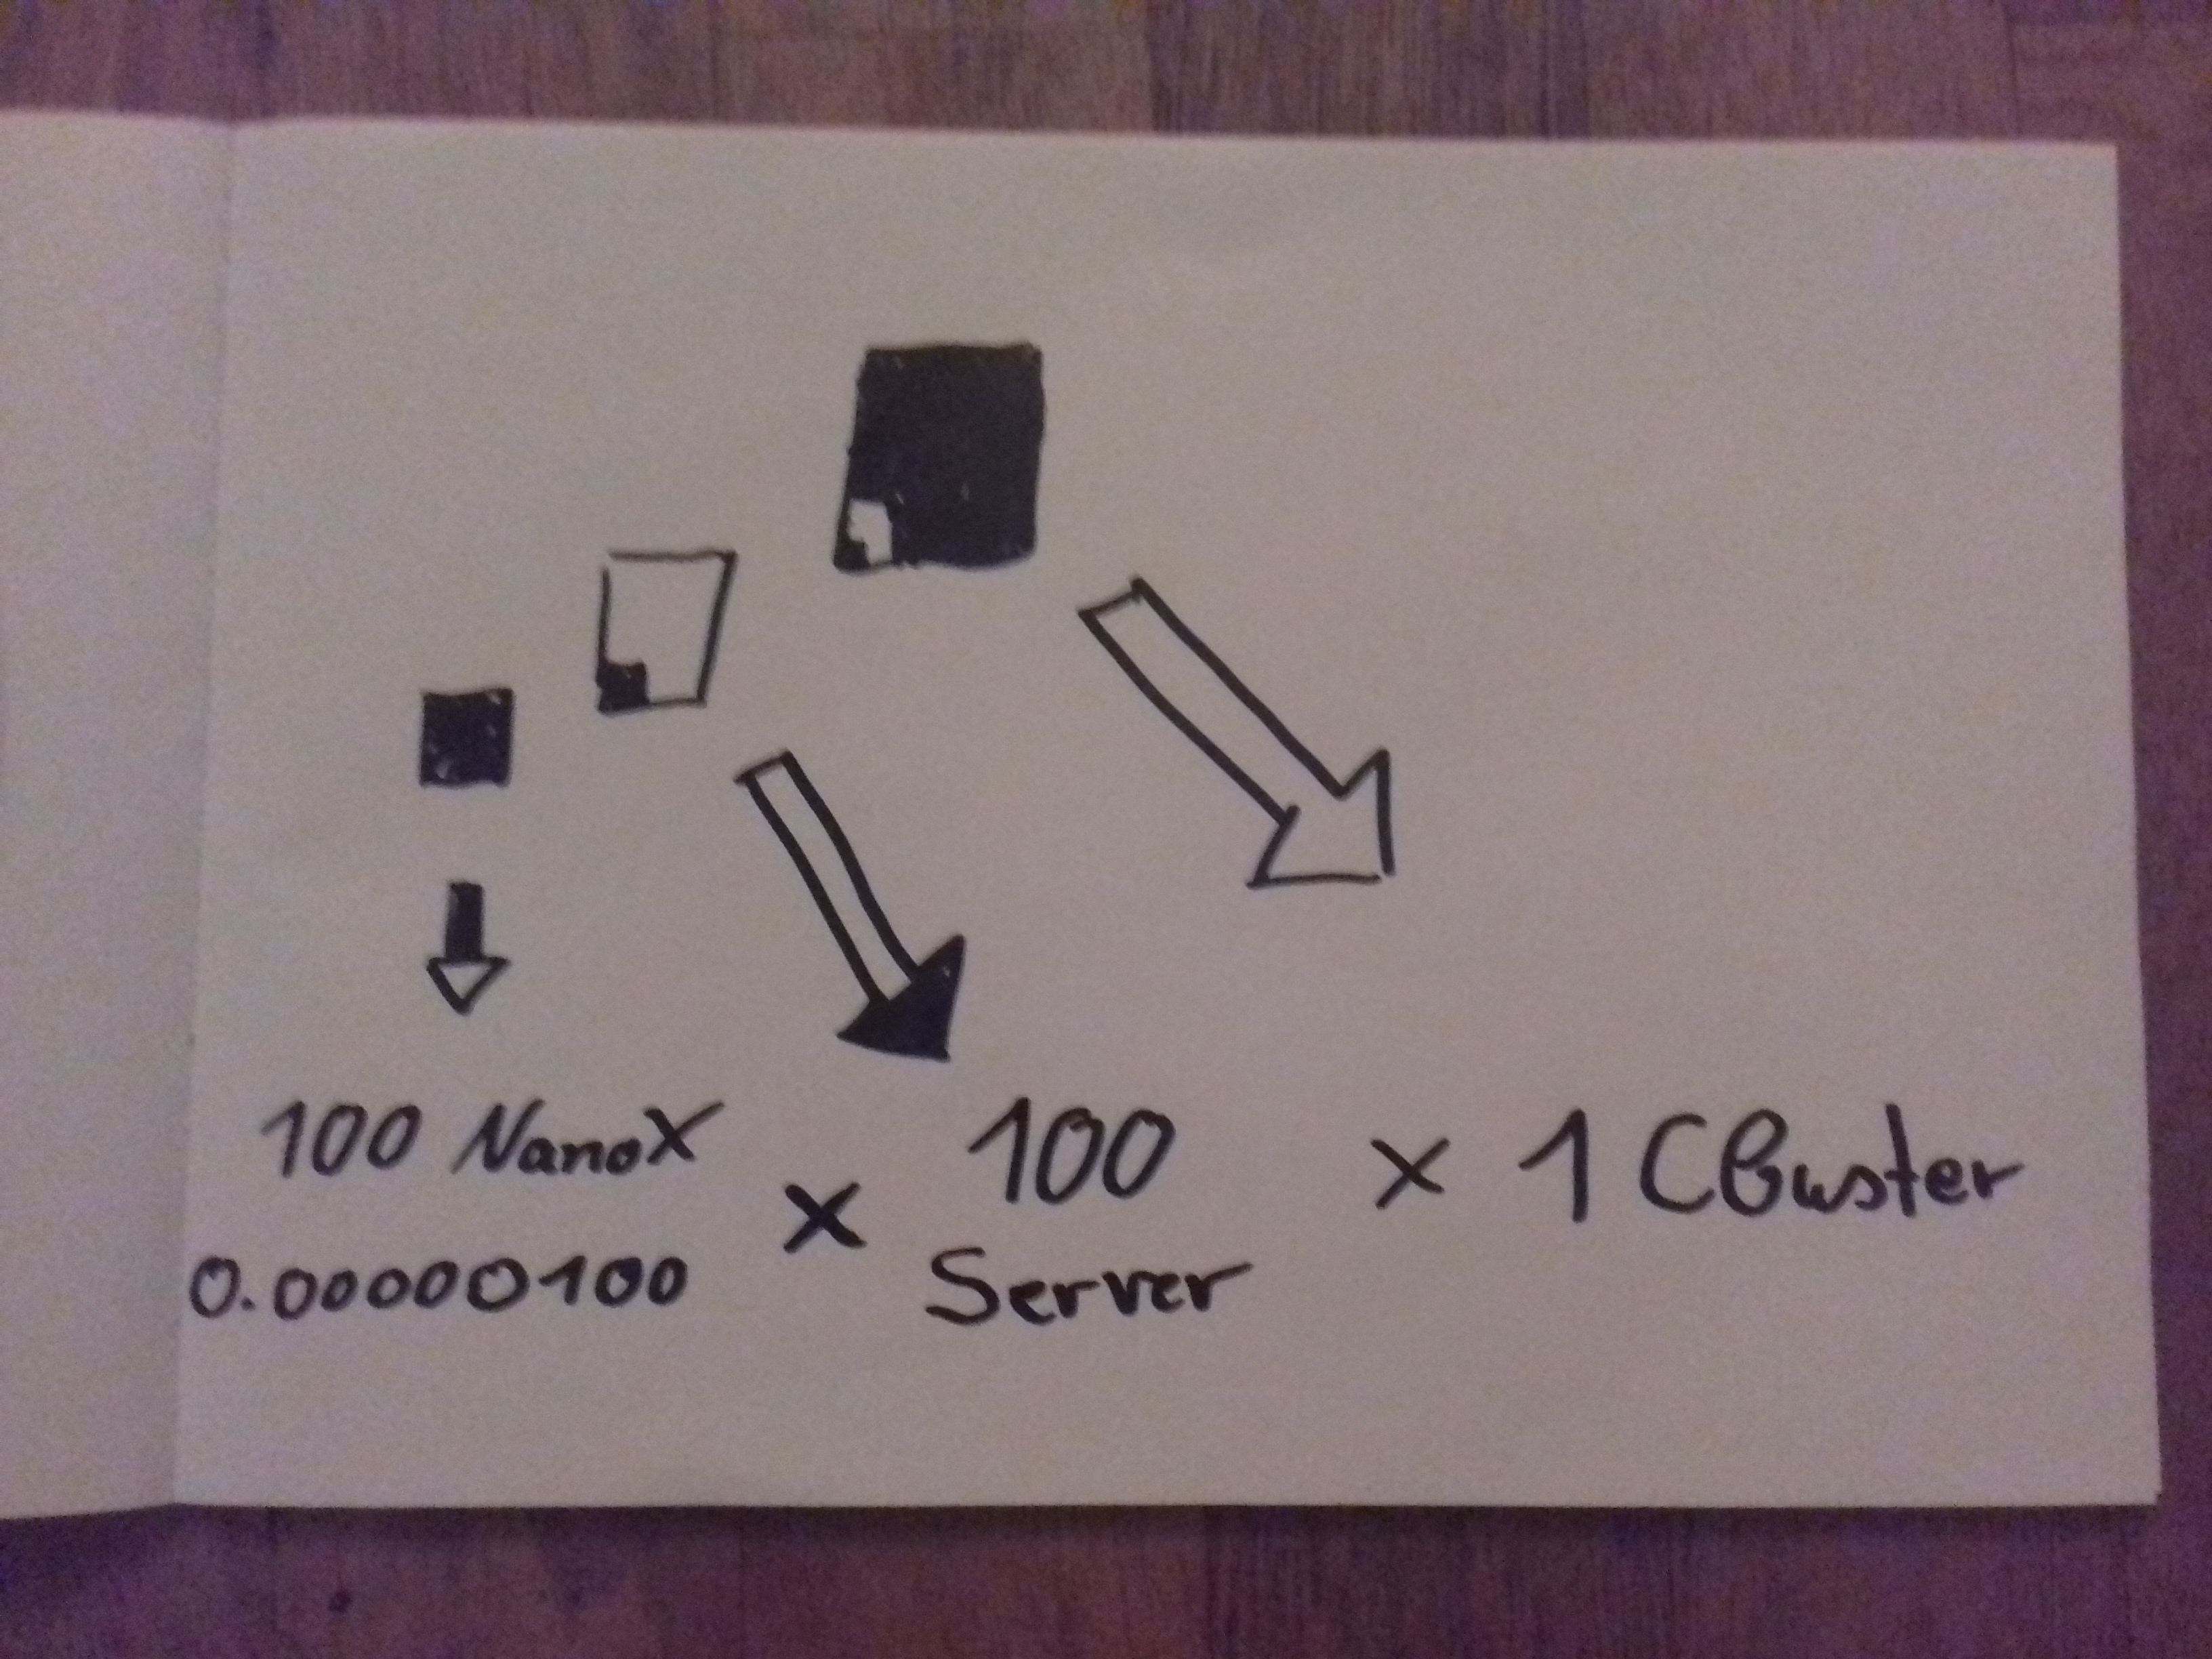 100 NanoX
0.00000100
x
100
Server
x 1 Cluster